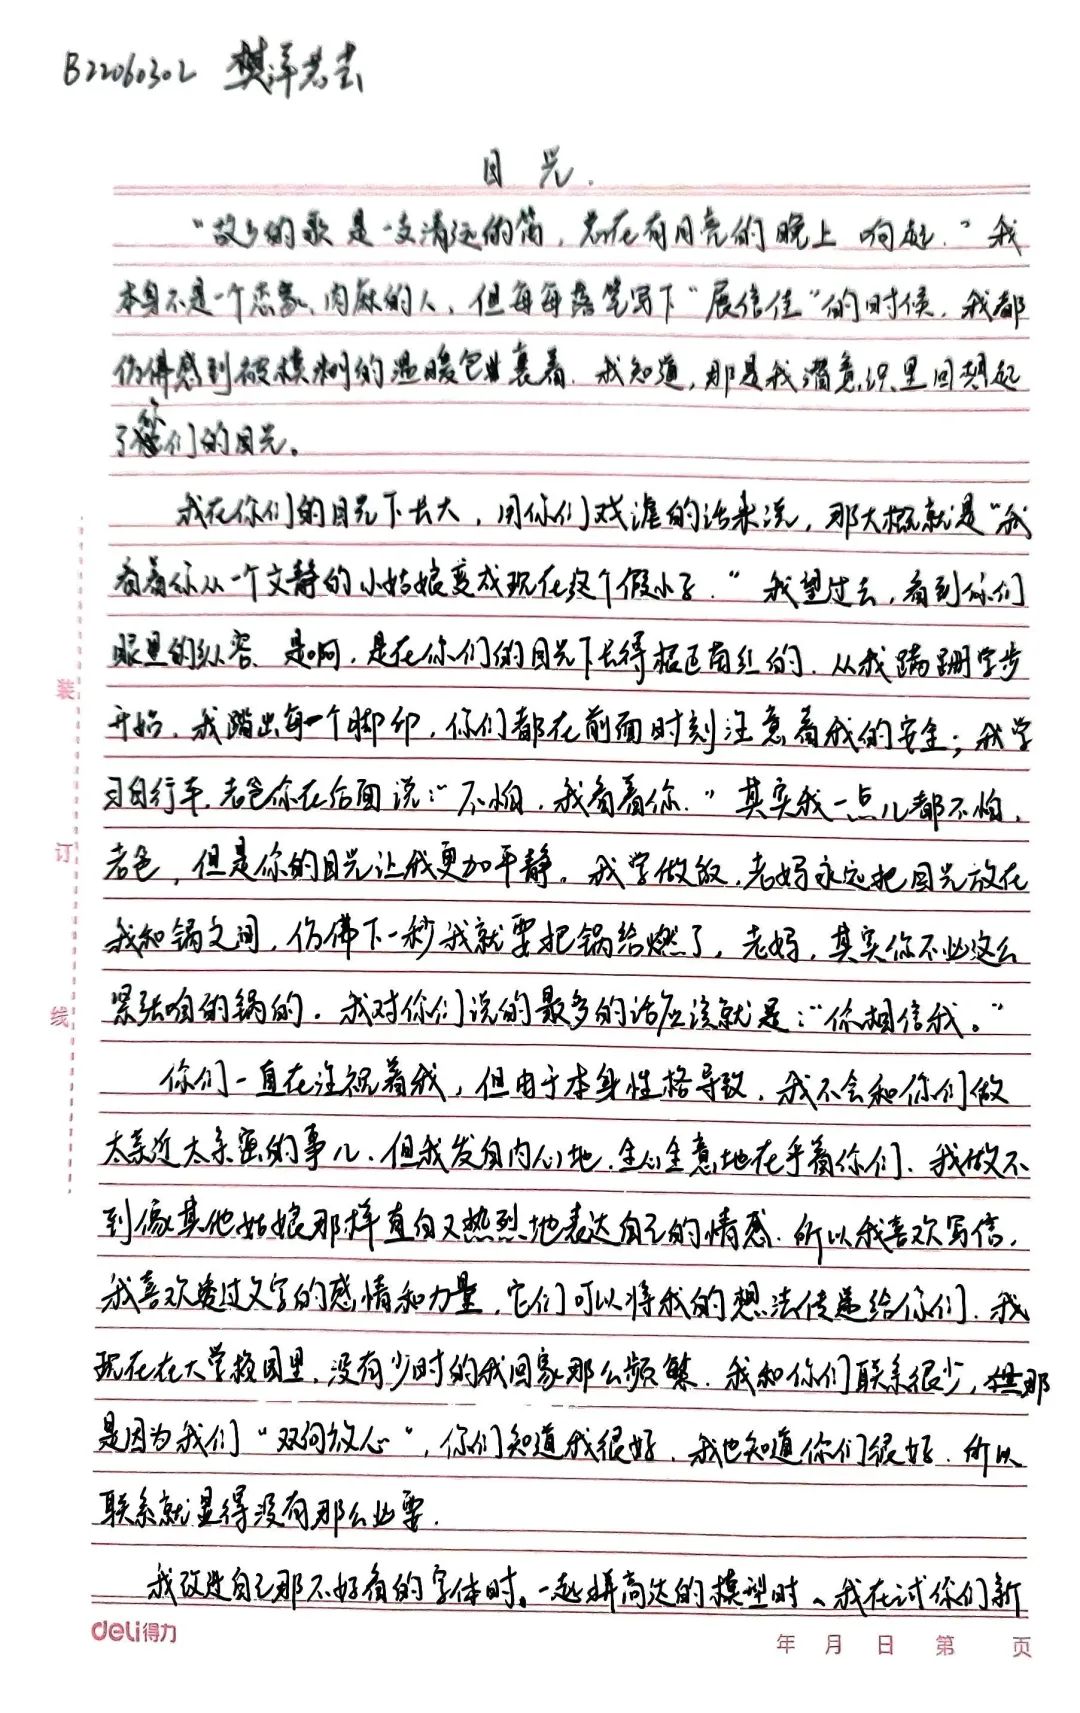 B22060302 樊洋若芸
目光.
“故乡的歌是一支清远的笛，总在有月亮的晚上响起.”我
本身不是一个恋家、肉麻的人，但每每落笔写下“展信佳”的时候，我都
仿佛感到被模糊的温暖包裹着.我知道，那是我潜意识里回想起
了你们的目光。
我在你们的目光下长大，用你们戏谑的话来说，那大概就是“我
看着你从一个文静的小姑娘变成现在这个假小子.”我望过去，看到你们
眼里的纵容.是啊，是在你们的目光下长得根正苗红的.从我蹒跚学步
开始，我踏出每一个脚印，你们都在前面时刻注意着我的安全；我学
习自行车，老爸你在后面说：“不怕，我看着你.”其实我一点儿都不怕，
老爸，但是你的目光让我更加平静。我学做饭，老妈永远把目光放在
我和锅之间，仿佛下一秒我就要把锅给燃了。老妈，其实你不必这么
紧张咱的锅的。我对你们说的最多的话应该就是：“你相信我。”
你们一直在注视着我，但由于本身性格导致，我不会和你们做
太亲近太亲密的事儿.但我发自内心地.全心全意地在乎着你们.我做不
到像其他姑娘那样直白又热烈地表达自己的情感.所以我喜欢写信，
我喜欢透过文字的感情和力量，它们可以将我的想法传递给你们.我
现在在大学校园里，没有少时的我回家那么频繁.我和你们联系很少，但那
是因为我们“双向放心”，你们知道我很好，我也知道你们很好.所以
联系就显得没有那么必要.
我改进自己那不好看的字体时。一起拼高达的模型时、我在试你们新
装
订
线
deli得力
年 月 日 第 页